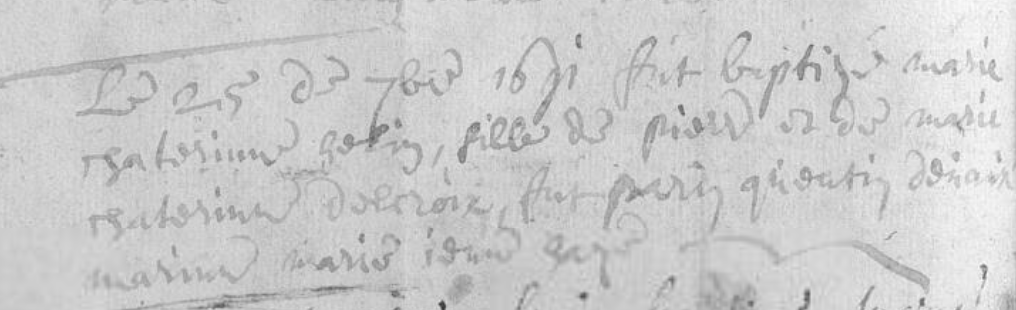 Le 25 de 7bre 1691 fut baptizé marie
chaterinne gelin, fille de pierre et de marie
chaterinne delcroix, fut parin quentin denain
marinne marie ienne